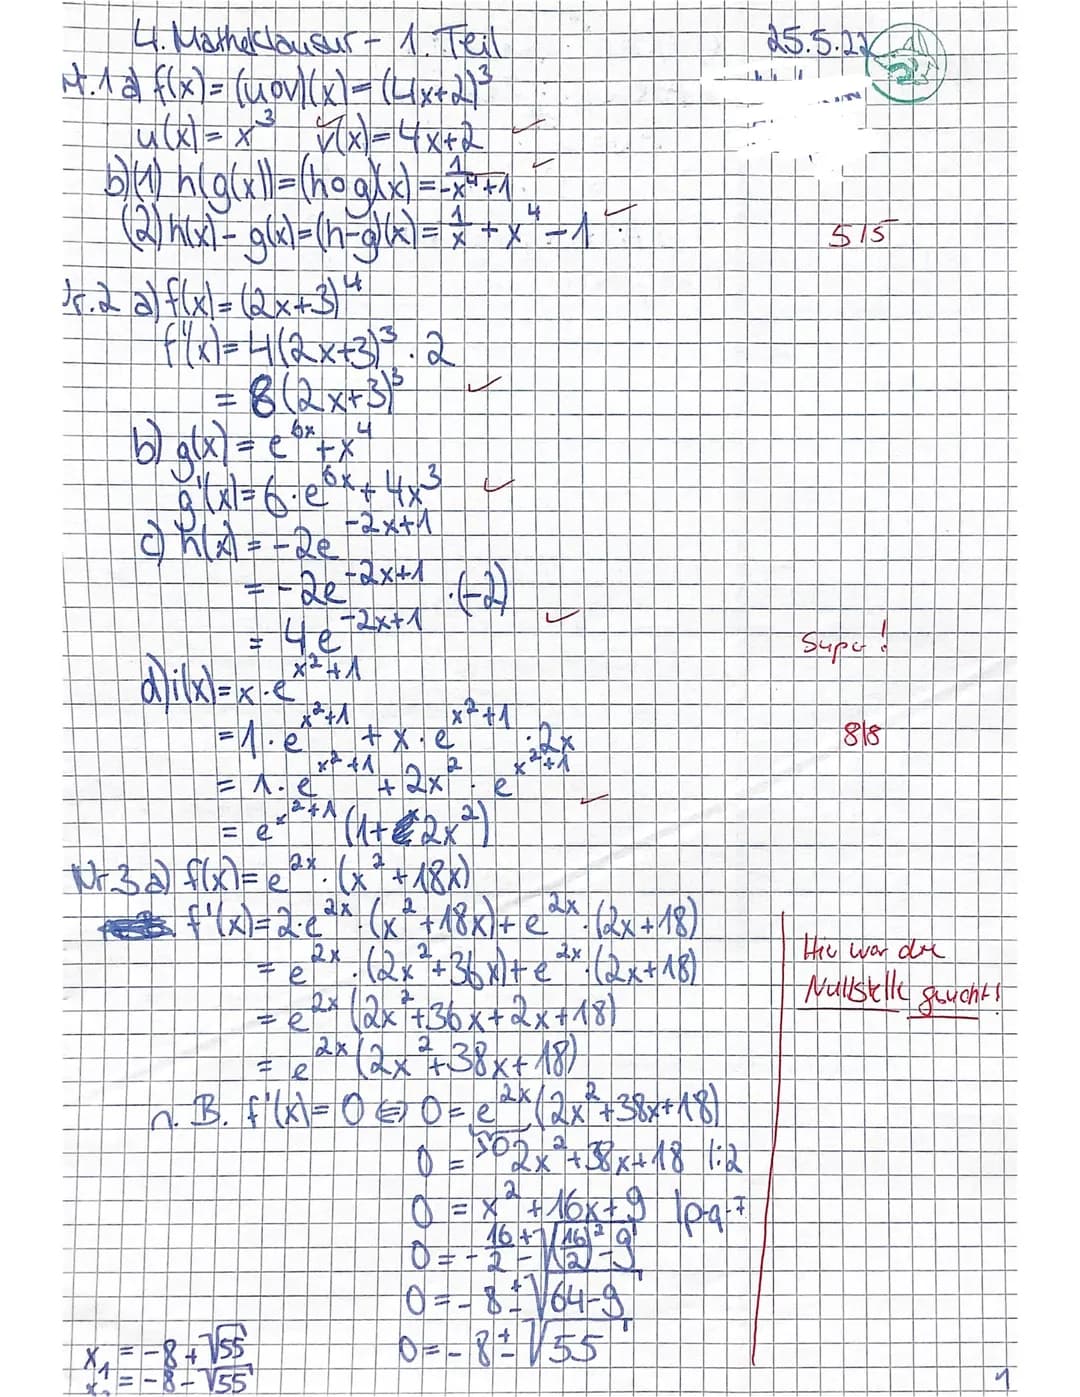 4. Matheklausur - 1. Teil 25.5.22
Nr.1 a) f(x) = (u∘v)(x) = (4x+2)³
u(x) = x³ v(x) = 4x+2
b)(1) h(g(x)) = (h∘g)(x) = 1/(-x⁴+1)
(2) h(x) - g(x) = (h-g)(x) = 1/x + x⁴ - 1
5/5
Nr.2 a) f(x) = (2x+3)⁴
f'(x) = 4(2x+3)³ · 2
= 8(2x+3)³
b) g(x) = e^6x + x⁴
g'(x) = 6·e^6x + 4x³
c) h(x) = -2e^-2x+1
= -2e^-2x+1 · (-2)
= 4e^-2x+1
Super!
d) i(x) = x · e^x²+1
= 1 · e^x²+1 + x · e^x²+1 · 2x
8/8
= 1 · e^x²+1 + 2x² · e^x²+1
= e^x²+1 (1+2x²)
Nr 3 a) f(x) = e^2x · (x² + 18x)
f'(x) = 2·e^2x · (x²+18x) + e^2x · (2x+18)
= e^2x · (2x²+36x) + e^2x · (2x+18)
Hier war die
Nullstelle gesucht!
= e^2x (2x²+36x+2x+18)
= e^2x (2x²+38x+18)
n. B. f'(x) = 0 ⇔ 0 = e^2x (2x²+38x+18)
0 = 2x²+38x+18 |:2
0 = x² + 16x + 9 |p-q-F
0 = -16/2 ± √((16/2)² - 9)
0 = -8 ± √64-9
0 = -8 ± √55
x₁ = -8 + √55
x₂ = -8 - √55
1